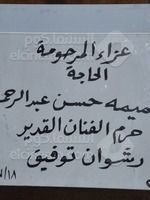 عزاء المرحومة
الحاجة
ميمه حسن عبدالرحـ
حرم الفنان القدير
رشوان توفيق